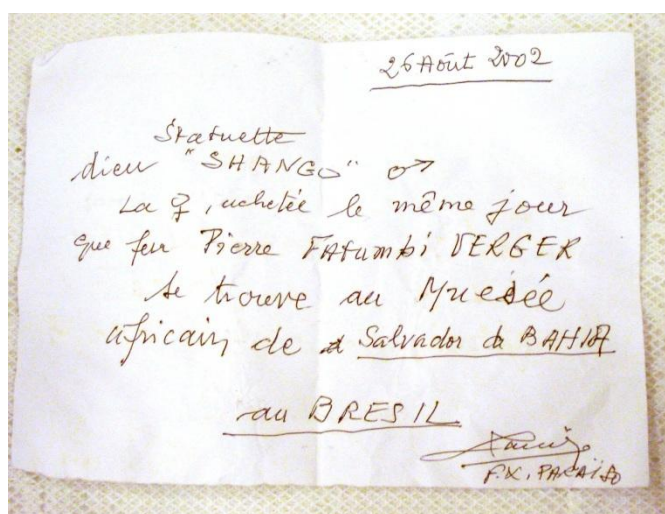 26 Août 2002
Statuette
dieu "SHANGO" ♂
La ♀, achetée le même jour
que feu Pierre FATUMBI VERGER
se trouve au Musée
africain de Salvador de BAHIA
au BRESIL
F.X. PARAÏSO